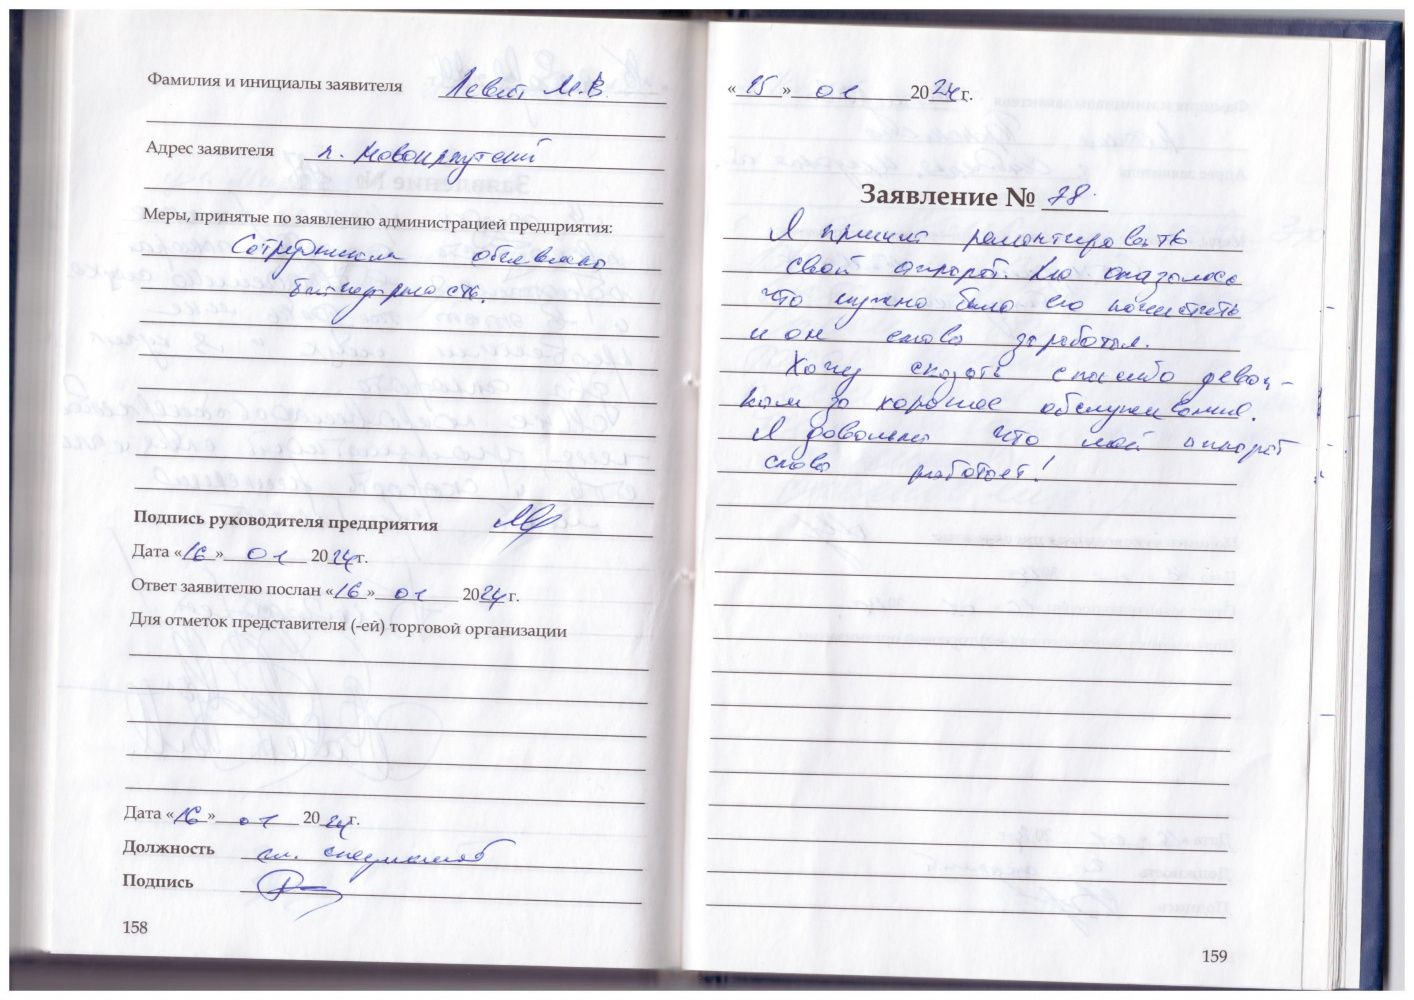 Фамилия и инициалы заявителя Левит М.В.
Адрес заявителя п. Новоиркутский
Меры, принятые по заявлению администрацией предприятия:
Сотрудникам объявлено
благодарность.
Подпись руководителя предприятия
Дата «16» 01 2024г.
Ответ заявителю послан «16» 01 2024г.
Для отметок представителя (-ей) торговой организации
Дата «16» 01 2024г.
Должность гл. специалист
Подпись
158
«15» 01 2024г.
Заявление № 78.
Я пришел ремонтировать
свой аппарат. Но оказалось
что нужно было его почистить
и он снова заработал.
Хочу сказать спасибо девоч-
кам за хорошее обслуживание.
Я доволен что мой аппарат
снова работает!
159